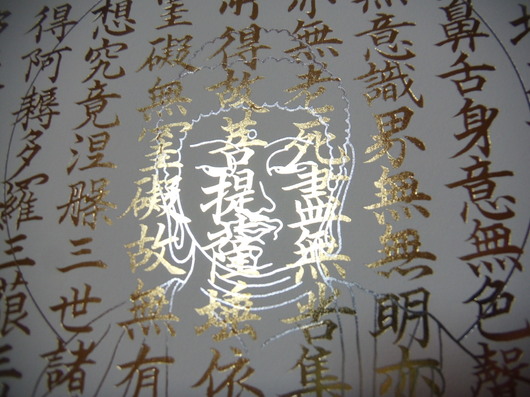 鼻舌身意無色聲
無意識界無無明亦
亦無老死盡無苦集
所得故菩提薩埵依
罣礙無罣礙故無有
想究竟涅槃三世諸
得阿耨多羅三藐三